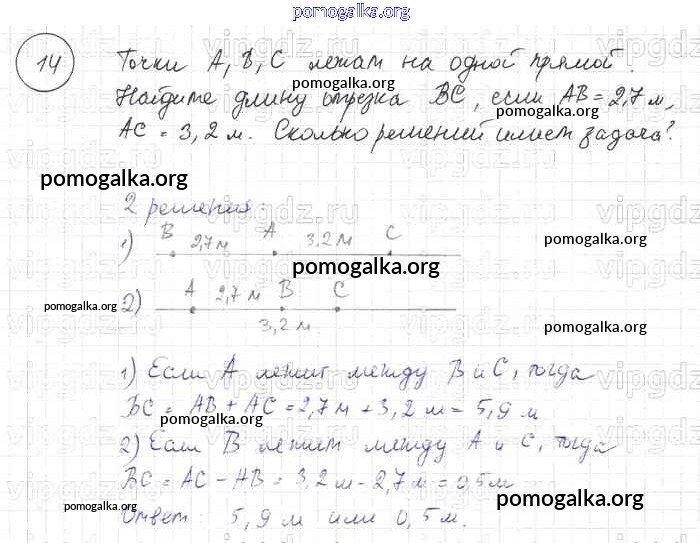 pomogalka.org
14
Точки А, В, С лежат на одной прямой.
pomogalka.org
Найдите длину отрезка ВС, если АВ = 2,7 м,
pomogalka.org
АС = 3,2 м. Сколько решений имеет задача?
pomogalka.org
vipgdz.ru
2 решения:
1) В 2,7 м А 3,2 м С
pomogalka.org
2) А 2,7 м В С
pomogalka.org
3,2 м
pomogalka.org
1) Если А лежит между В и С, тогда
ВС = АВ + АС = 2,7 м + 3,2 м = 5,9 м
pomogalka.org
2) Если В лежит между А и С, тогда
ВС = АС - АВ = 3,2 м - 2,7 м = 0,5 м
pomogalka.org
Ответ: 5,9 м или 0,5 м.